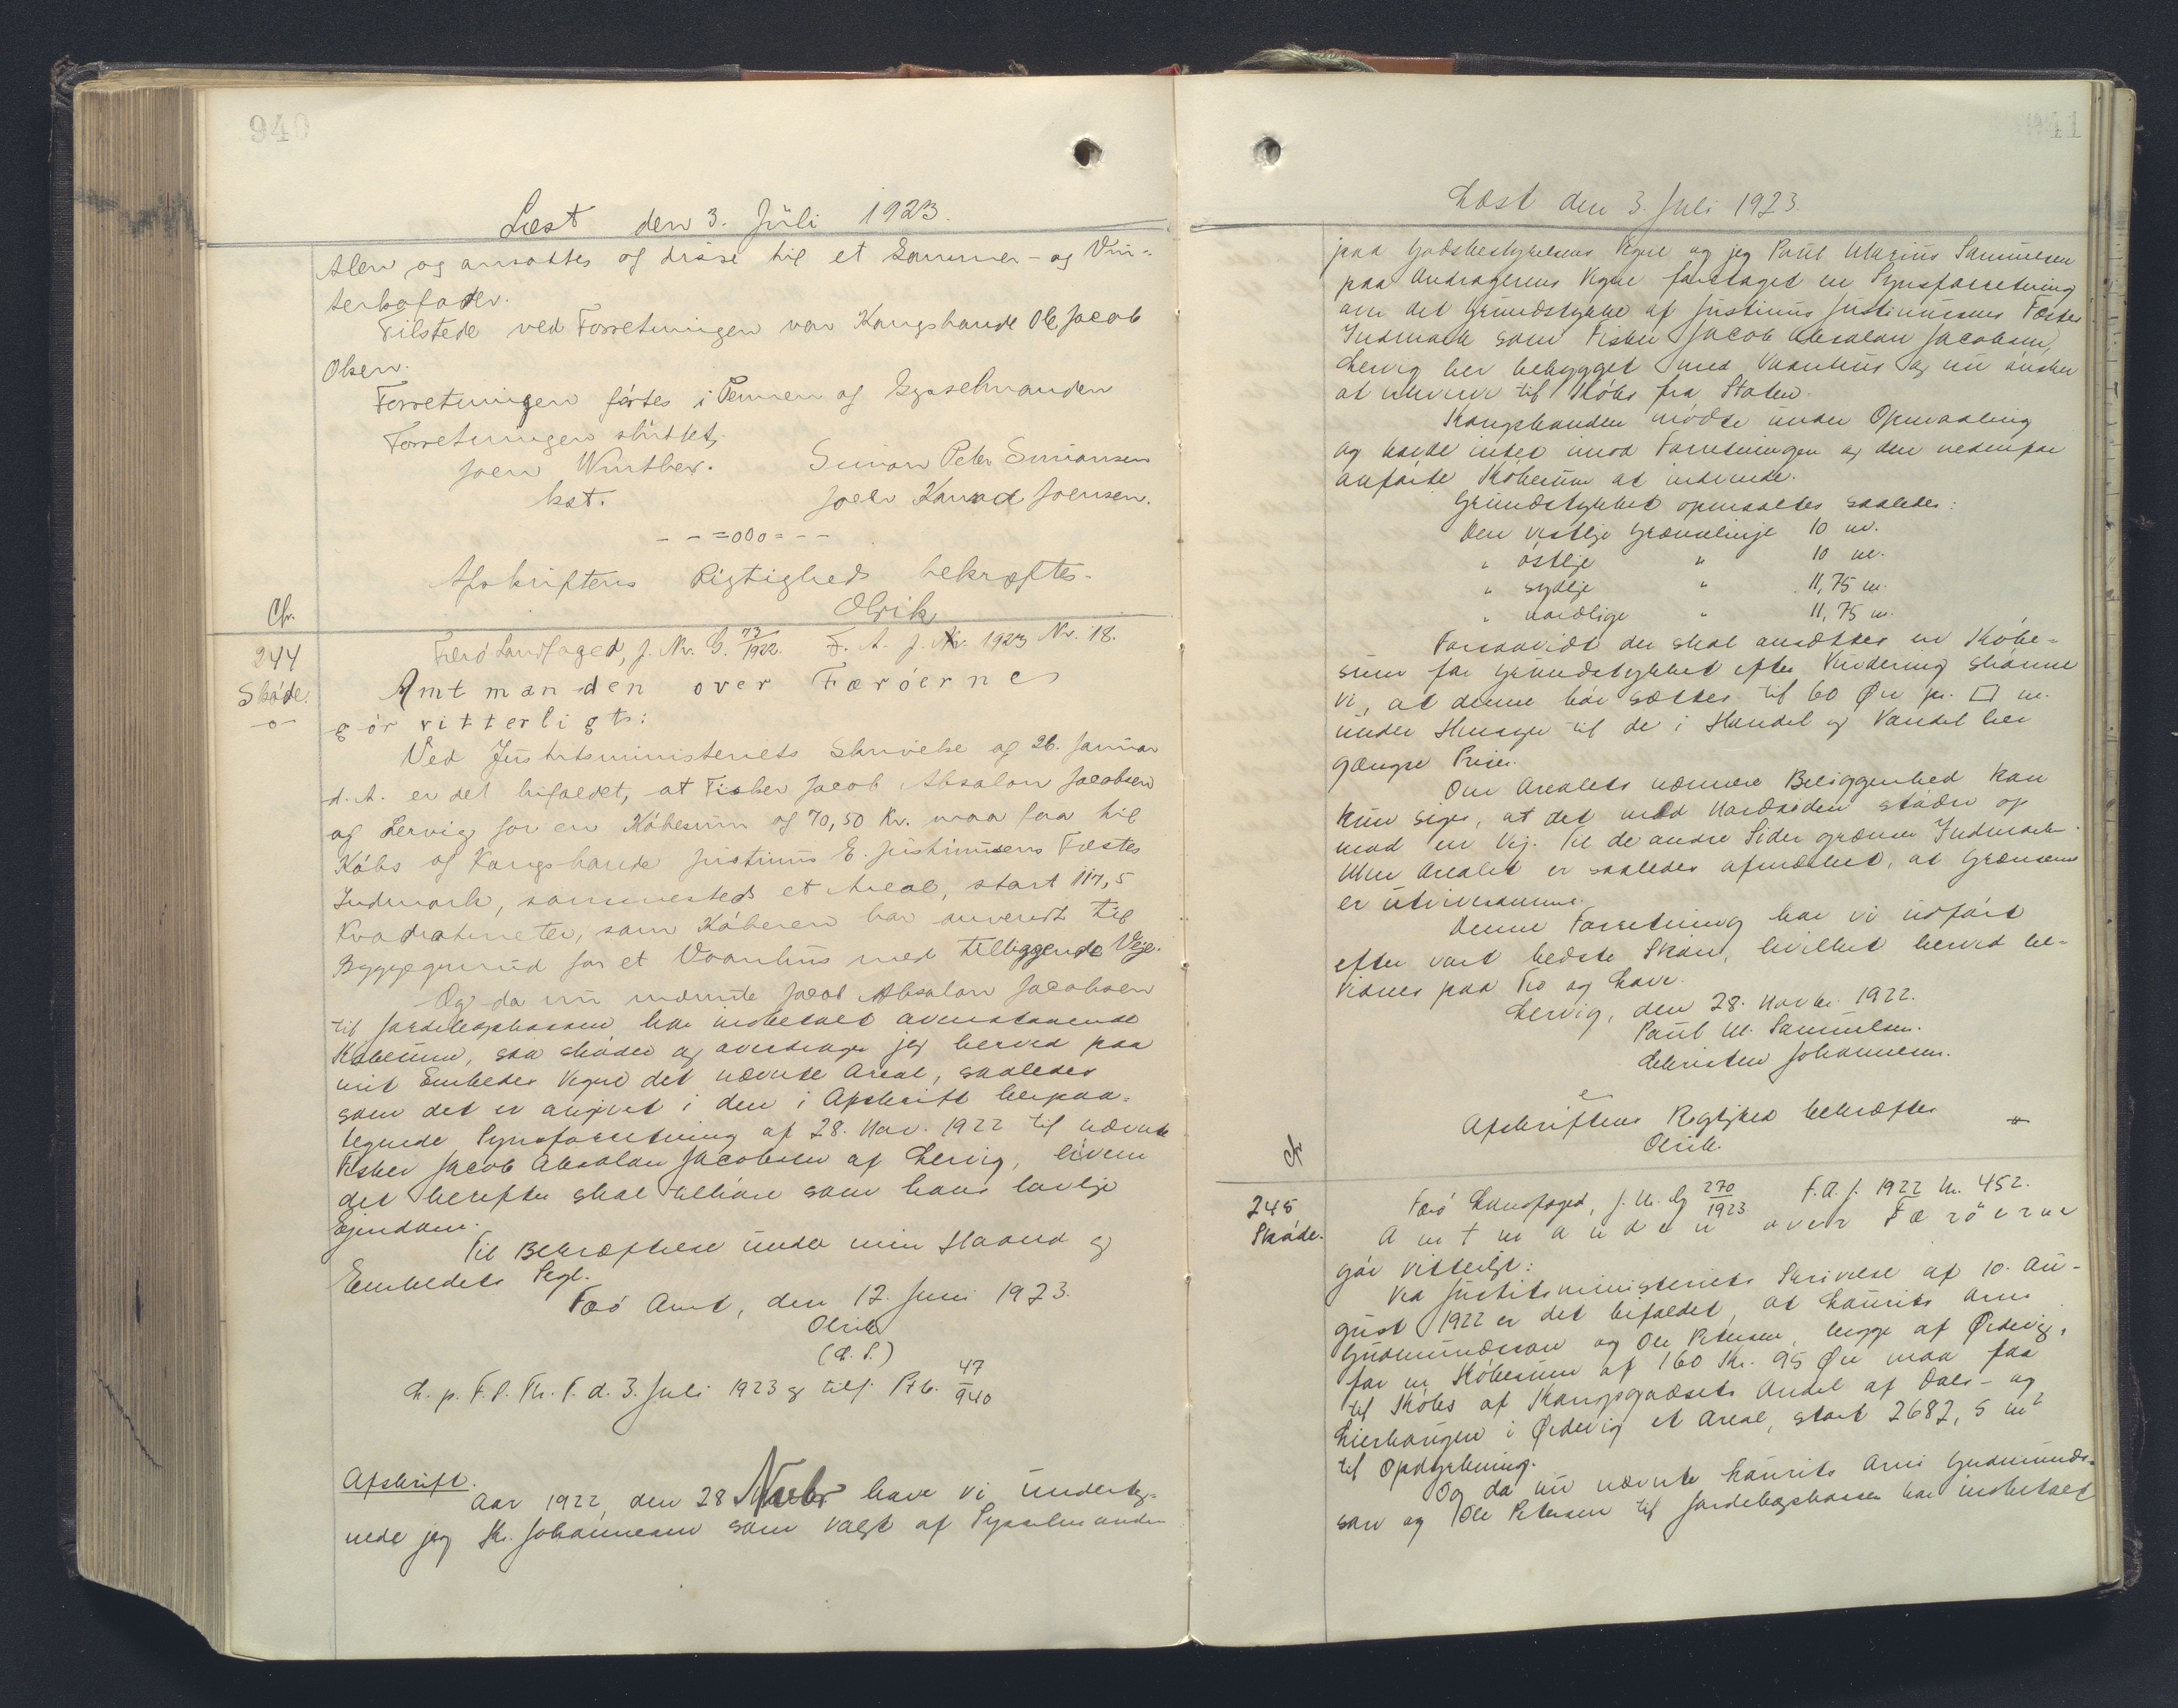 940
Læst den 3. Juli 1923.
Alen og ansattes of disse til et Sommer- og Vin-
terkofoder.
Tilstede ved Forretningen var Kongsbonde Ole Jacob
Olsen.
Forretningen førtes i Pennen af Sysselmanden
Forretningen sluttet,
Joen Winther. Simon Peter Simonsen
kst. Joen Konrad Joensen.
- - =ooo= - -
Afskriftens Rigtighed bekræftes.
Olrik
Cfr.
244
Skøde.
-o-
Færø Landfoged, J. Nr. G. 73/1922. F. A. J. Nr. 1923 Nr. 18.
Amtmanden over Færøerne
gør vitterligt:
Ved Justitsministeriets Skrivelse af 26. Januar
d.A. er det bifaldet, at Fisker Jacob Absalon Jacobsen
af Lervig for en Købesum af 70,50 Kr. maa faa til
Købs af Kongsbonde Justinus E. Justinussens Fæstes
Indmark, sammesteds et Areal, stort 117,5
Kvadratmeter, som Køberen har anvendt til
Byggegrund for et Vaanhus med tilliggende Veje.
Og da nu nævnte Jacob Absalon Jacobsen
til Jordebogskassen har indbetalt ovenstaaende
Købesum, saa skøder og overdrager jeg herved paa
mit Embedes Vegne det nævnte Areal, saaledes
som det er angivet i den i Afskrift herpaa-
tegnede Synsforretning af 28. Nov. 1922 til nævnte
Fisker Jacob Absalon Jacobsen af Lervig, hvem
det herefter skal tilhøre som hans lovlige
Ejendom.
Til Bekræftelse under min Haand og
Embedets Segl.
Færø Amt, den 12. Juni 1923.
Olrik
(L. S.)
L. p. F. S. Th. F. d. 3. Juli 1923 og tilf. Ptb. 47/940
Afskrift.
Aar 1922, den 28 Novbr have vi underteg-
nede jeg Kr. Johannesen som valgt af Sysselmanden
941
Læst den 3. Juli 1923.
paa Godsbestyrelsens Vegne og jeg Poul Marius Samuelsen
paa Andragerens Vegne foretaget en Synsforretning
om det Grundstykke af Justinus Justinussens Fæstes
Indmark som Fisker Jacob Absalon Jacobsen,
Lervig her bebygget med Vaanhus og nu ønsker
at erhverve til Købs fra Staten.
Kongsbonden mødte under Opmaaling
og havde intet imod Forretningen og den nedenfor
anførte Købesum at indvende.
Grundstykket opmaaltes saaledes:
Den vestlige Grænselinje 10 m.
" østlige " 10 m.
" sydlige " 11,75 m.
" nordlige " 11,75 m.
Forsaavidt der skal ansættes en Købe-
sum for Grundstykket efter Vurdering skønne
vi, at denne bør sættes til 60 Øre pr. □ m.
under Hensyn til de i Handel og Vandel her
gængse Priser.
Om Arealets nærmere Beliggenhed kan
kun siges, at det mod Nordsiden støder op
mod en Vej. Til de andre Sider grænser Indmark.
Men Arealet er saaledes afmærket, at Grænserne
er utvivlsomme.
Denne Forretning har vi udført
efter vort bedste Skøn, hvilket herved be-
vidnes paa Tro og Love.
Lervig, den 28. Novbr. 1922.
Poul M. Samuelsen.
Christen Johannesen.
Afskriftens Rigtighed bekræftes
Olrik.
Cfr
245
Skøde.
Færø Landfoged, J. Nr. G 270/1923 F. A. J. 1922 Nr. 452.
Amtmanden over Færøerne
gør vitterligt:
Ved Justitsministeriets Skrivelse af 10. Au-
gust 1922 er det bifaldet, at Laurits Arni
Gudmundsson og Ole Petersen, begge af Ørdevig,
for en Købesum af 160 Kr. 95 Øre maa faa
til Købs af Kongsgodsets Andel af Dals- og
Lierhaugen i Ørdevig et Areal, stort 2682,5 m²
til Opdyrkning.
Og da nu nævnte Laurits Arni Gudmunds-
son og Ole Petersen til Jordebogskassen har indbetalt